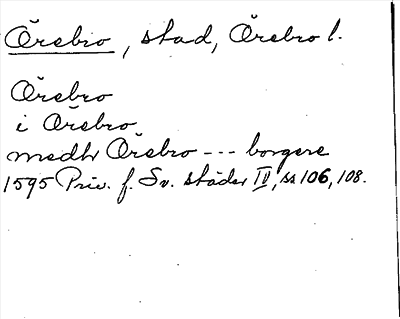 Örebro, stad, Örebro l.
Örebro
i Örebro
medh Örebro --- borgere
1595 Priv. f. Sv. städer IV, ss 106, 108.